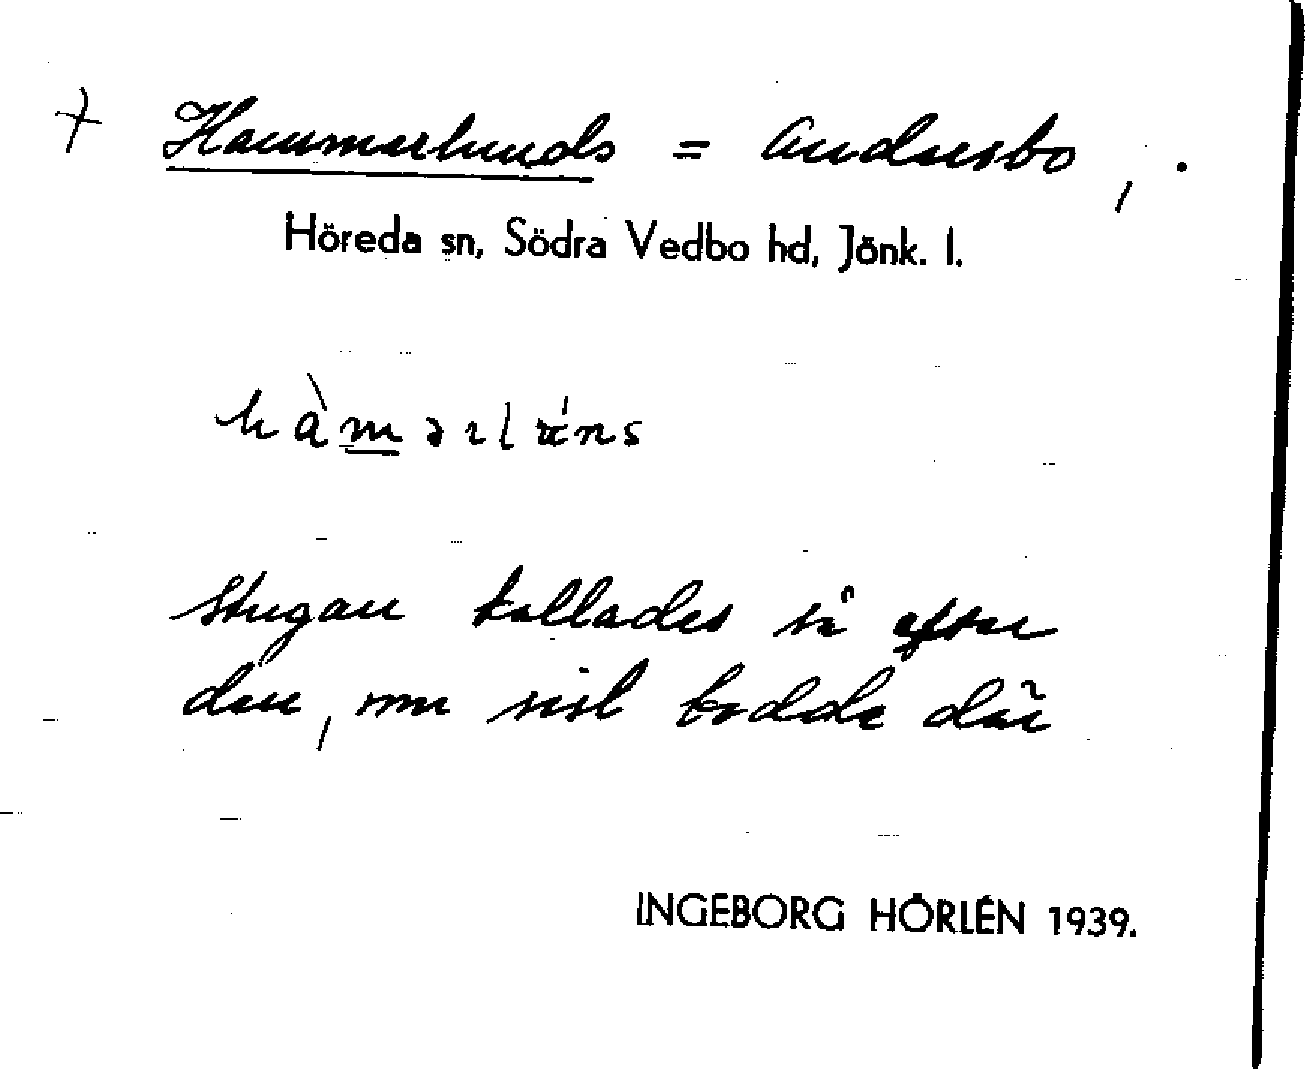 + Hammarlunds = Andersbo, .
Höreda sn, Södra Vedbo hd, Jönk. l.
hàmərlúns
Stugan kallades så efter
den, som sist bodde där
INGEBORG HÖRLÉN 1939.